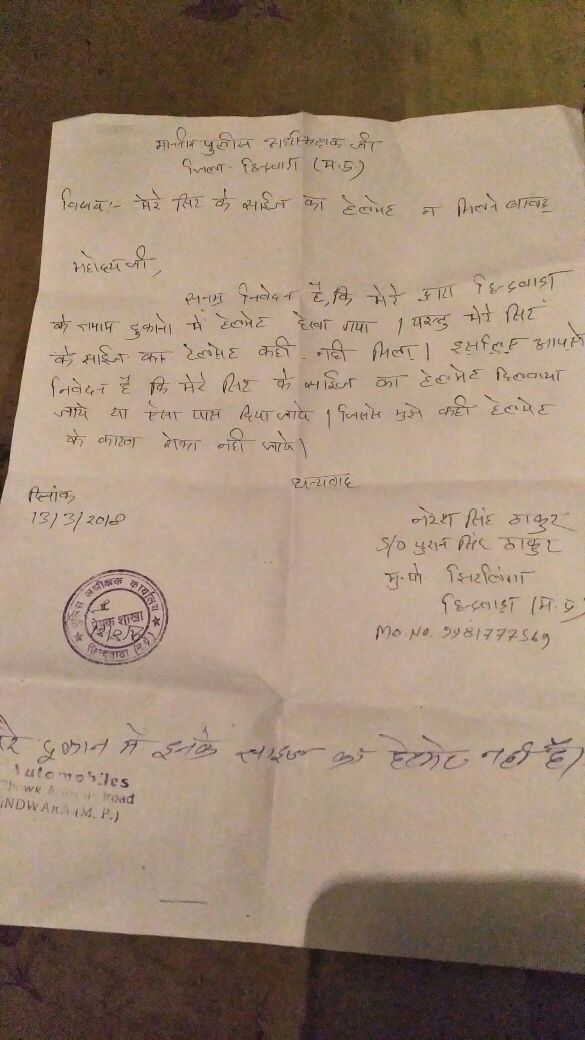 माननीय पुलीस अधीक्षक जी
जिला - छिन्दवाड़ा (म.प्र.)
विषय:- मेरे सिर के साईज का हेल्मेट न मिलने बाबत्
महोदय जी,
सनम्र निवेदन है, कि मेरे द्वारा छिन्दवाड़ा
के तमाम दुकानो में हेल्मेट देखा गया । परन्तु मेरे सिर
के साईज का हेल्मेट कही नही मिला । इसलिए आपसे
निवेदन है कि मेरे सिर के साईज का हेल्मेट दिलवाया
जाये या ऐसा पास दिया जाये । जिससे मुझे कही हेल्मेट
के कारण रोका नही जाये ।
धन्यवाद
दिनांक
13/3/2018
नरेश सिंह ठाकुर
S/O पुरान सिंह ठाकुर
मु.पो.
छिन्दवाड़ा (म.प्र.)
Mo. No. 9981777569
पुलिस अधीक्षक कार्यालय
शाखा
छिन्दवाड़ा (म.प्र.)
दूकान में इनके साइज का हेल्मेट नहीं है।
Automobiles
Road
INDWARA (M. P.)